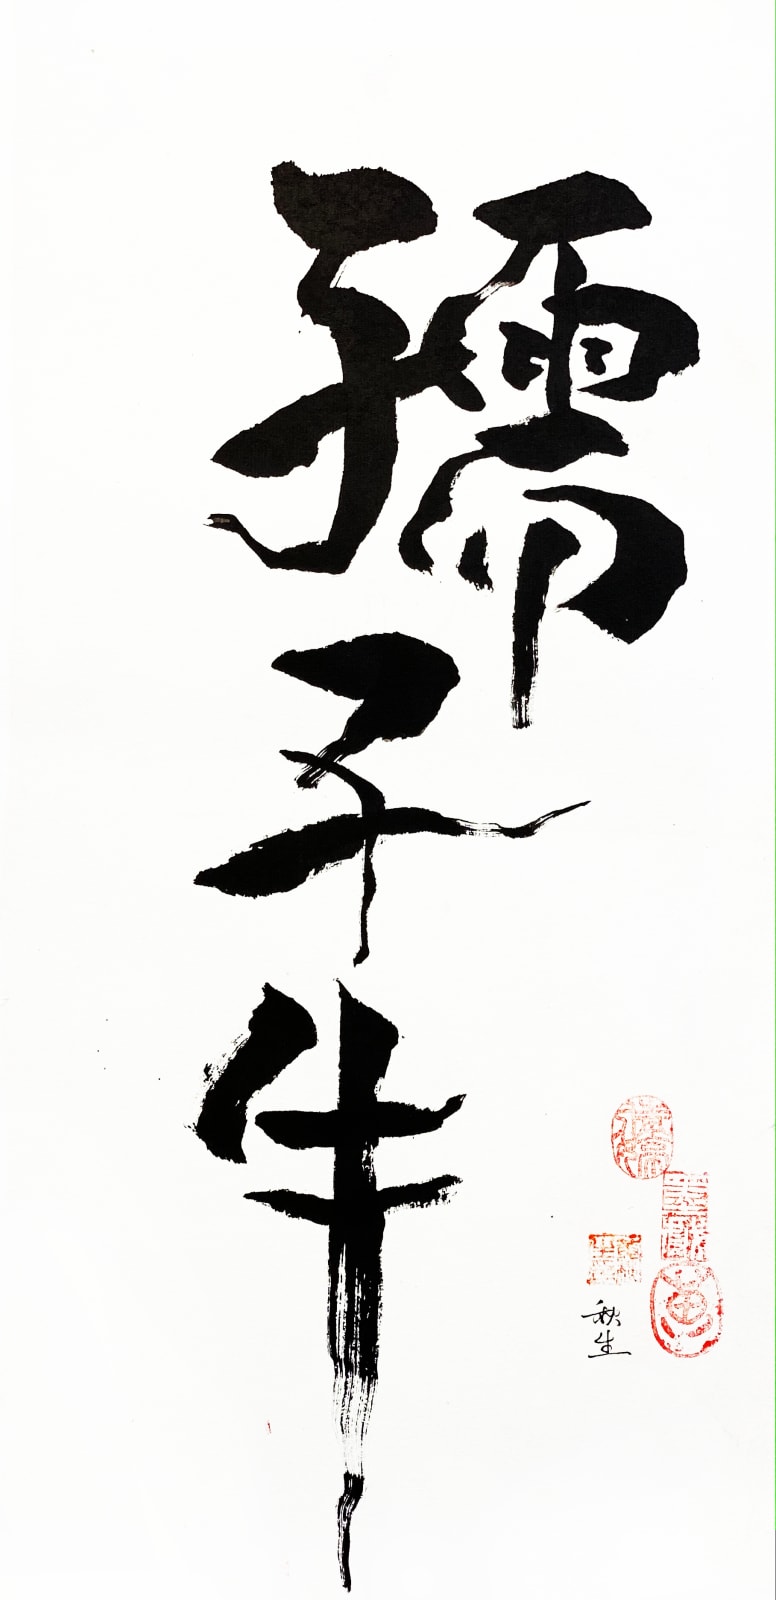 孺子牛
秋生